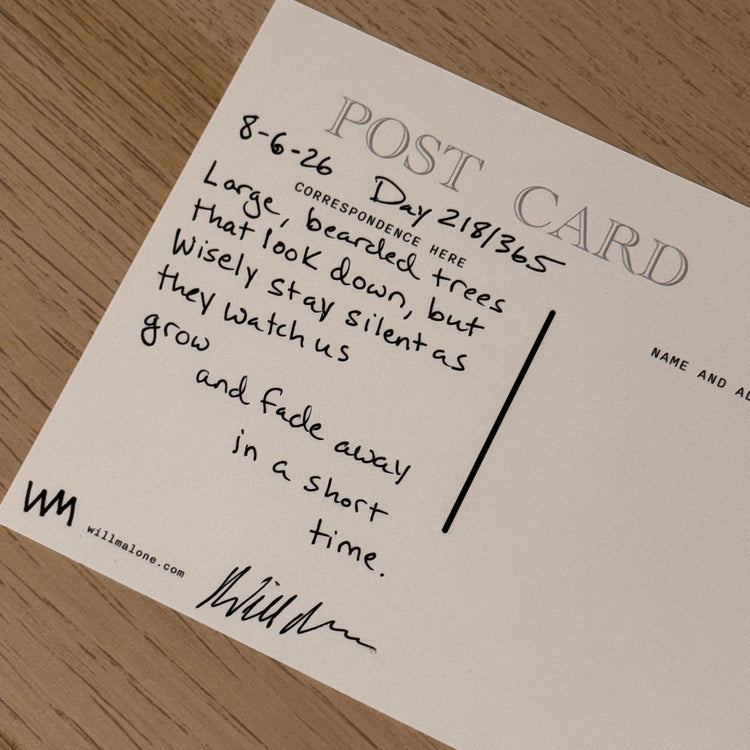 POST CARD
8-6-26 Day 218/365
CORRESPONDENCE HERE
Large, bearded trees
that look down, but
wisely stay silent as
they watch us
grow
and fade away
in a short
time.
NAME AND AD
WM
willmalone.com